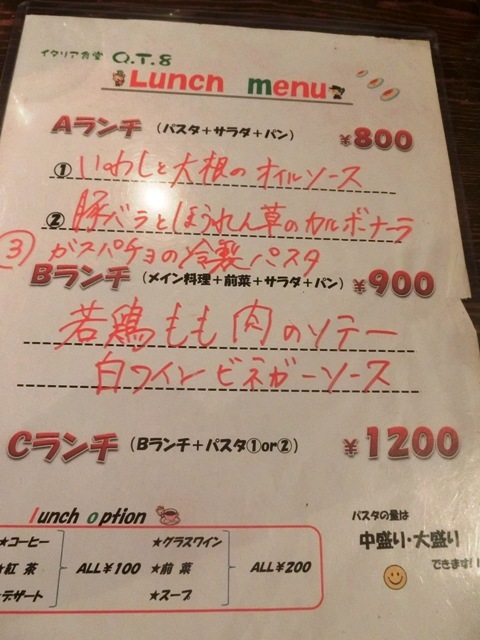 イタリア食堂 Q.T.8
Lunch menu
Aランチ (パスタ+サラダ+パン) ¥800
① いわしと大根のオイルソース
② 豚バラとほうれん草のカルボナーラ
③ ガスパチョの冷製パスタ
Bランチ (メイン料理+前菜+サラダ+パン) ¥900
若鶏もも肉のソテー
白ワインビネガーソース
Cランチ (Bランチ+パスタ①or②) ¥1200
lunch option
★コーヒー
★紅 茶
デザート
ALL¥100
★グラスワイン
★前 菜
★スープ
ALL¥200
パスタの量は
中盛り・大盛り
できます!